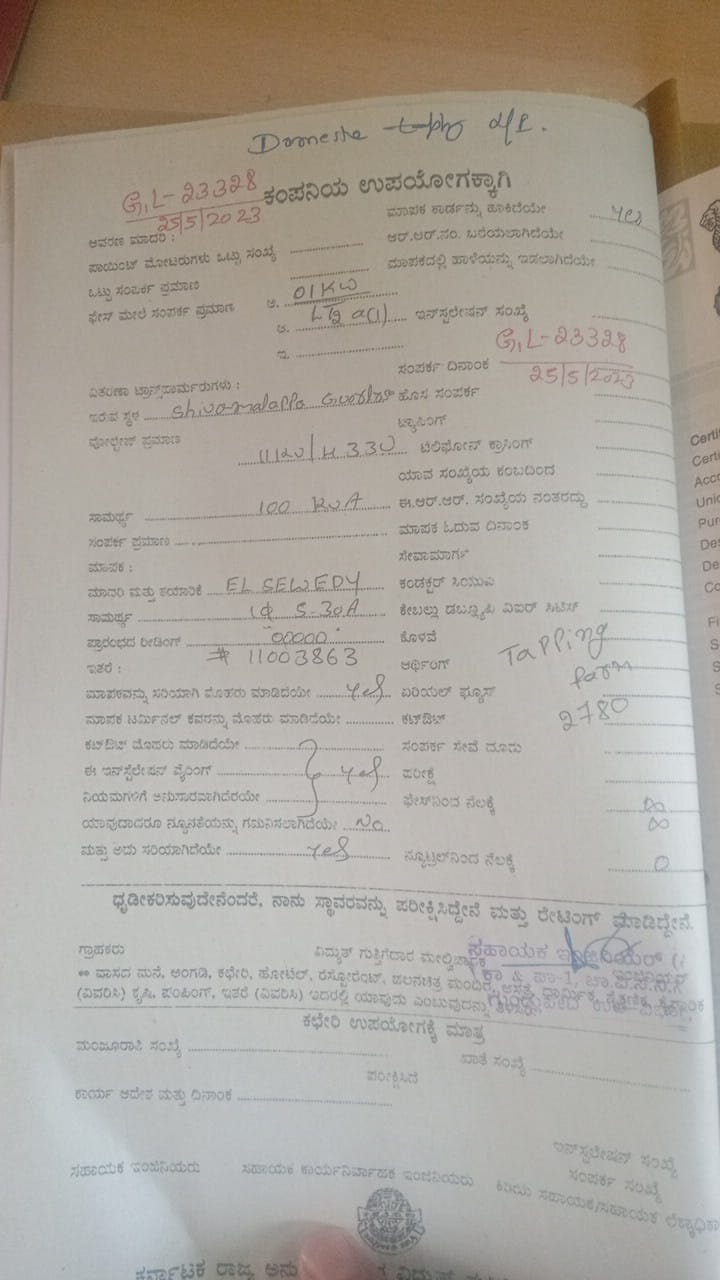 Domestic
G,L-23328
25/5/2023
ಕಂಪನಿಯ ಉಪಯೋಗಕ್ಕಾಗಿ
ಮಾಪಕ ಕಾರ್ಡನ್ನು ಹಾಕಿದೆಯೇ yes
ಆವರಣ ಮಾದರಿ :
ಆರ್.ಆರ್.ನಂ. ಬರೆಯಲಾಗಿದೆಯೇ
ಪಾಯಿಂಟ್ ಮೋಟರುಗಳು ಒಟ್ಟು ಸಂಖ್ಯೆ
ಮಾಪಕದಲ್ಲಿ ಹಾಳೆಯನ್ನು ಇಡಲಾಗಿದೆಯೇ
ಒಟ್ಟು ಸಂಪರ್ಕ ಪ್ರಮಾಣ
ಫೇಸ್ ಮೇಲೆ ಸಂಪರ್ಕ ಪ್ರಮಾಣ ಅ. 01KW
ಆ. LT2 a(1) ಇನ್‌ಸ್ಟಲೇಷನ್ ಸಂಖ್ಯೆ
ಇ.
ಸಂಪರ್ಕ ದಿನಾಂಕ G,L-23328
25/5/2023
ವಿತರಣಾ ಟ್ರಾನ್ಸ್‌ಫಾರ್ಮರುಗಳು :
ಇರುವ ಸ್ಥಳ Shivamalappa ಹೊಸ ಸಂಪರ್ಕ
ಟ್ಯಾಪಿಂಗ್
ವೋಲ್ಟೇಜ್ ಪ್ರಮಾಣ 11KV/ ಟೆಲಿಫೋನ್ ಕ್ರಾಸಿಂಗ್
ಯಾವ ಸಂಖ್ಯೆಯ ಕಂಬದಿಂದ
ಸಾಮರ್ಥ್ಯ 100 KVA ಈ.ಆರ್.ಆರ್. ಸಂಖ್ಯೆಯ ನಂತರದ್ದು
ಸಂಪರ್ಕ ಪ್ರಮಾಣ ಮಾಪಕ ಓದುವ ದಿನಾಂಕ
ಮಾಪಕ : ಸೇವಾಮಾರ್ಗ
ಮಾದರಿ ಮತ್ತು ತಯಾರಿಕೆ EL SEWEDY ಕಂಡಕ್ಟರ್ ಸಿಯುವಿ
ಸಾಮರ್ಥ್ಯ 1Φ 5-30A ಕೇಬಲ್ಲು ಡಬ್ಲ್ಯೂಪಿ ವಿಐಆರ್ ಸಿಟಿಎಸ್
ಪ್ರಾರಂಭದ ರೀಡಿಂಗ್ 00000 ಕೊಳವೆ
ಇತರೆ : # 11003863 ಆರ್ಥಿಂಗ್
Tapping
form
2780
ಮಾಪಕವನ್ನು ಸರಿಯಾಗಿ ಮೊಹರು ಮಾಡಿದೆಯೇ yes ಏರಿಯಲ್ ಫ್ಯೂಸ್
ಮಾಪಕ ಟರ್ಮಿನಲ್ ಕವರನ್ನು ಮೊಹರು ಮಾಡಿದೆಯೇ ಕಟ್‌ಔಟ್
ಕಟ್‌ಔಟ್ ಮೊಹರು ಮಾಡಿದೆಯೇ ಸಂಪರ್ಕ ಸೇವೆ ದೂರು
ಈ ಇನ್‌ಸ್ಟಲೇಷನ್ ವೈರಿಂಗ್ yes ಪರೀಕ್ಷೆ
ನಿಯಮಗಳಿಗೆ ಅನುಸಾರವಾಗಿದೆಯೇ ಫೇಸ್‌ನಿಂದ ನೆಲಕ್ಕೆ ∞
ಯಾವುದಾದರೂ ನ್ಯೂನತೆಯನ್ನು ಗಮನಿಸಲಾಗಿದೆಯೇ No ∞
ಮತ್ತು ಅದು ಸರಿಯಾಗಿದೆಯೇ yes ನ್ಯೂಟ್ರಲ್‌ನಿಂದ ನೆಲಕ್ಕೆ 0
ಧೃಡೀಕರಿಸುವುದೇನೆಂದರೆ, ನಾನು ಸ್ಥಾವರವನ್ನು ಪರೀಕ್ಷಿಸಿದ್ದೇನೆ ಮತ್ತು ರೇಟಿಂಗ್ ಮಾಡಿದ್ದೇನೆ.
ಗ್ರಾಹಕರು ವಿದ್ಯುತ್ ಗುತ್ತಿಗೆದಾರ ಮೇಲ್ವಿಚಾರಕ
ಸಹಾಯಕ ಇಂಜಿನಿಯರ್
** ವಾಸದ ಮನೆ, ಅಂಗಡಿ, ಕಛೇರಿ, ಹೋಟೆಲ್, ರೆಸ್ಟೋರೆಂಟ್, ಚಲನಚಿತ್ರ ಮಂದಿರ, ಆಸ್ಪತ್ರೆ
(ವಿವರಿಸಿ) ಕೃಷಿ, ಪಂಪಿಂಗ್, ಇತರೆ (ವಿವರಿಸಿ) ಇದರಲ್ಲಿ ಯಾವುದು ಎಂಬುವುದನ್ನು
ಕಛೇರಿ ಉಪಯೋಗಕ್ಕೆ ಮಾತ್ರ
ಮಂಜೂರಾತಿ ಸಂಖ್ಯೆ ಖಾತೆ ಸಂಖ್ಯೆ
ಪರೀಕ್ಷಿಸಿದೆ
ಕಾರ್ಯ ಆದೇಶ ಮತ್ತು ದಿನಾಂಕ
ಇನ್‌ಸ್ಟಲೇಷನ್ ಸಂಖ್ಯೆ
ಸಂಪರ್ಕ ಸಂಖ್ಯೆ
ಸಹಾಯಕ ಇಂಜಿನಿಯರು ಸಹಾಯಕ ಕಾರ್ಯನಿರ್ವಾಹಕ ಇಂಜಿನಿಯರು ಕಿರಿಯ ಸಹಾಯಕ/ಸಹಾಯಕ ಲೆಕ್ಕಾಧಿಕಾ
ಕರ್ನಾಟಕ ರಾಜ್ಯ